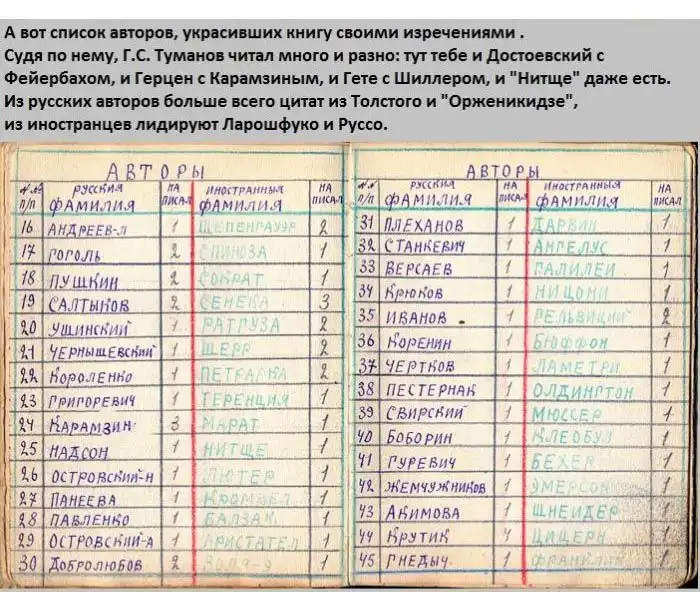 А вот список авторов, украсивших книгу своими изречениями .
Судя по нему, Г.С. Туманов читал много и разно: тут тебе и Достоевский с
Фейербахом, и Герцен с Карамзиным, и Гете с Шиллером, и "Нитще" даже есть.
Из русских авторов больше всего цитат из Толстого и "Орженикидзе",
из иностранцев лидируют Ларошфуко и Руссо.
АВТОРЫ
№№ п/п РУССКИЯ ФАМИЛИЯ НА ПИСАЛ ИНОСТРАННЫЯ ФАМИЛИЯ НА ПИСАЛ
16 АНДРЕЕВ-Л 1 ЩЕПЕНГАУЭР 2
17 ГОГОЛЬ 2 СПИНОЗА 1
18 ПУШКИН 2 СОКРАТ 1
19 САЛТЫКОВ 2 СЕНЕКА 3
20 УШИНСКИЙ 1 РАТГУЗА 2
21 ЧЕРНЫШЕВСКИЙ 1 ШЕРР 2
22 КОРОЛЕНКО 1 ПЕТРАРКА 2
23 ГРИГОРЕВИЧ 1 ТЕРЕНЦИЯ 1
24 КАРАМЗИН 3 МАРАТ 1
25 НАДСОН 1 НИТЩЕ 1
26 ОСТРОВСКИЙ-Н 1 ЛЮТЕР 1
27 ПАНЕЕВА 1 КРОМВЕЛ 1
28 ПАВЛЕНКО 1 БАЛЗАК 1
29 ОСТРОВСКИЙ-А 1 АРИСТАТЕЛ 1
30 ДОБРОЛЮБОВ 2 ЗОЛЯ-Э 1
АВТОРЫ
№№ п/п РУССКИЯ ФАМИЛИЯ НА ПИСАЛ ИНОСТРАННЫЯ ФАМИЛИЯ НА ПИСАЛ
31 ПЛЕХАНОВ 1 ДАРВИН 1
32 СТАНКЕВИЧ 1 АНГЕЛУС 1
33 ВЕРСАЕВ 1 ГАЛИЛЕИ 1
34 КРЮКОВ 1 НИЦОНИ 1
35 ИВАНОВ 1 2
36 КОРЕНИН 1 БЮФФОН 1
37 ЧЕРТКОВ 1 ЛАМЕТРИ 1
38 ПЕСТЕРНАК 1 ОЛДИНГТОН 1
39 СВИРСКИЙ 1 МЮССЕР 1
40 БОБОРИН 1 КЛЕОБУЛ 1
41 ГУРЕВИЧ 1 БЕХЕР 1
42 ЖЕМЧУЖНИКОВ 1 ЭМЕРСОН 1
43 АКИМОВА 1 ШНЕЙДЕР 1
44 КРУТИК 4 ЦИЦЕРН 1
45 ГНЕДЫЧ 1 ФРАНКЛИН 1